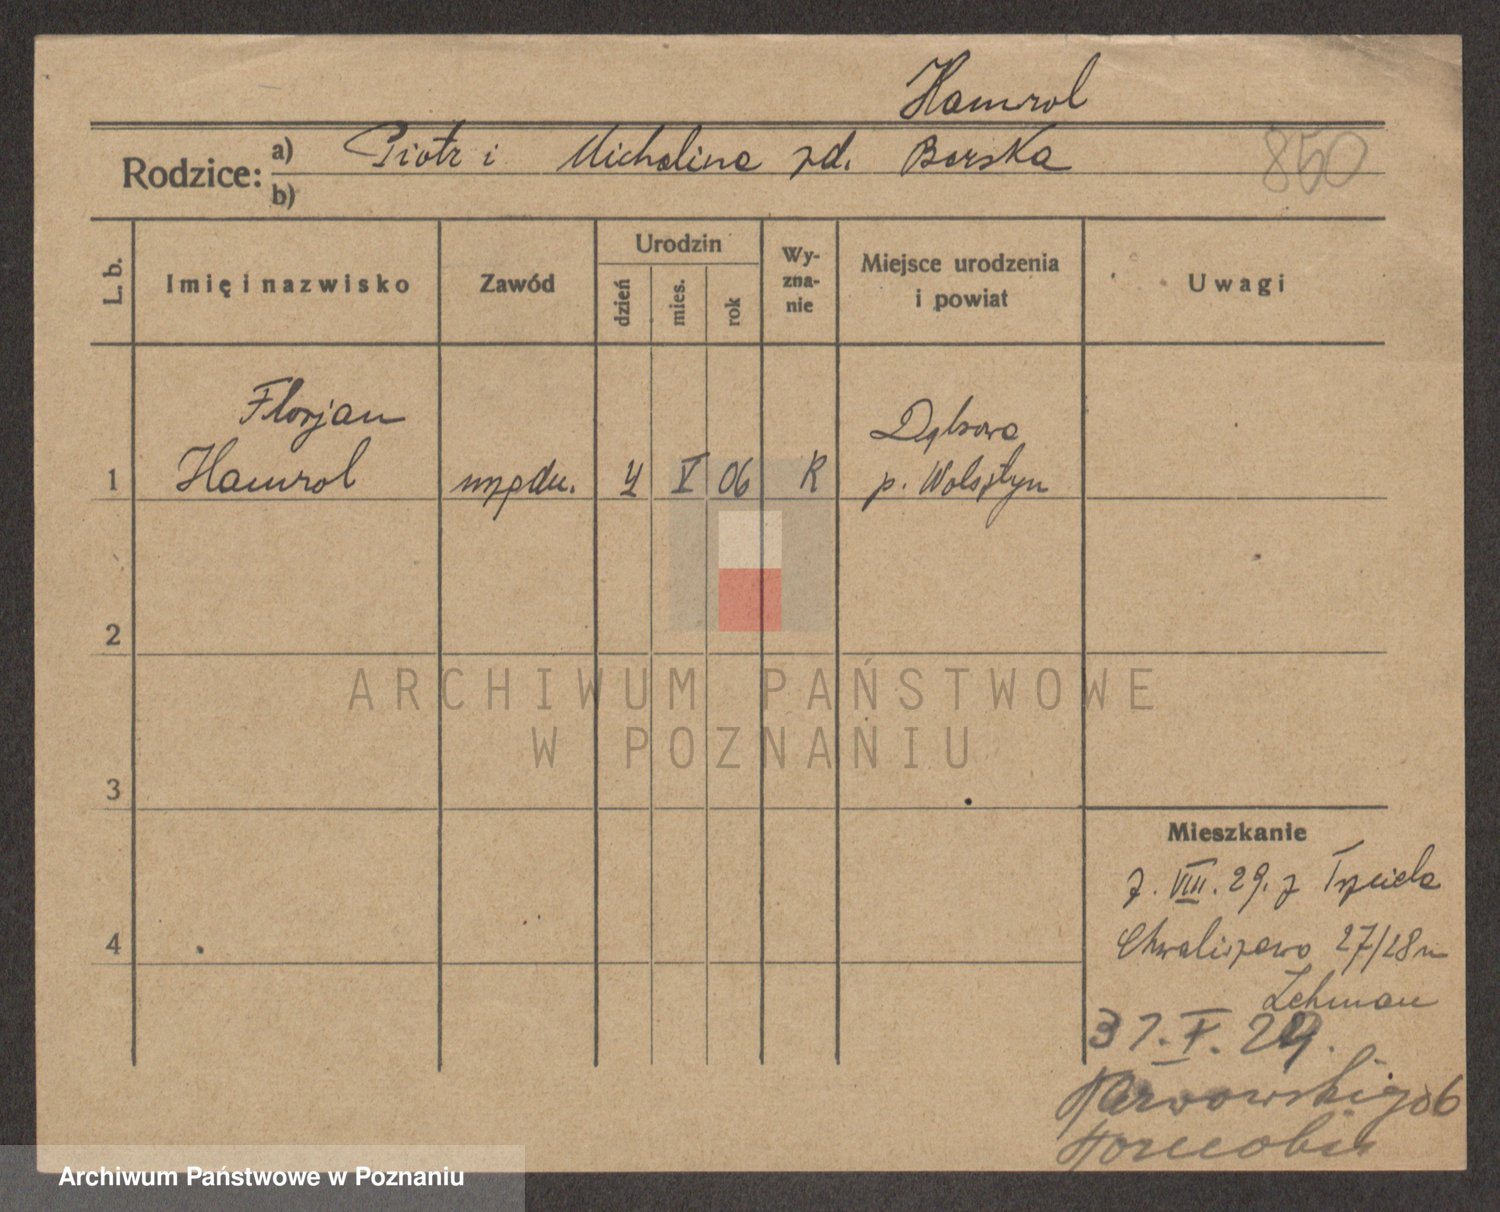 Hamrol
Rodzice: a) Piotr i Michalina zd. Barska
b)
850
L. b. Imię i nazwisko Zawód Urodzin dzień mies. rok Wyznanie Miejsce urodzenia i powiat Uwagi
Florjan Dąbrowa
1 Hamrol urzędn. 4 V 06 R p. Wolsztyn
2
ARCHIWUM PAŃSTWOWE
W POZNANIU
3
Mieszkanie
7. VIII. 29. z Trzciela
4 Chwaliszewo 27/28 u
Lehman
31. 29.
Karwowskiego 6
Archiwum Państwowe w Poznaniu